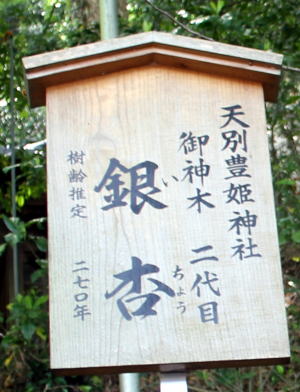 天別豊姫神社
御神木 二代目
銀杏
いちょう
樹齢推定 二七〇年